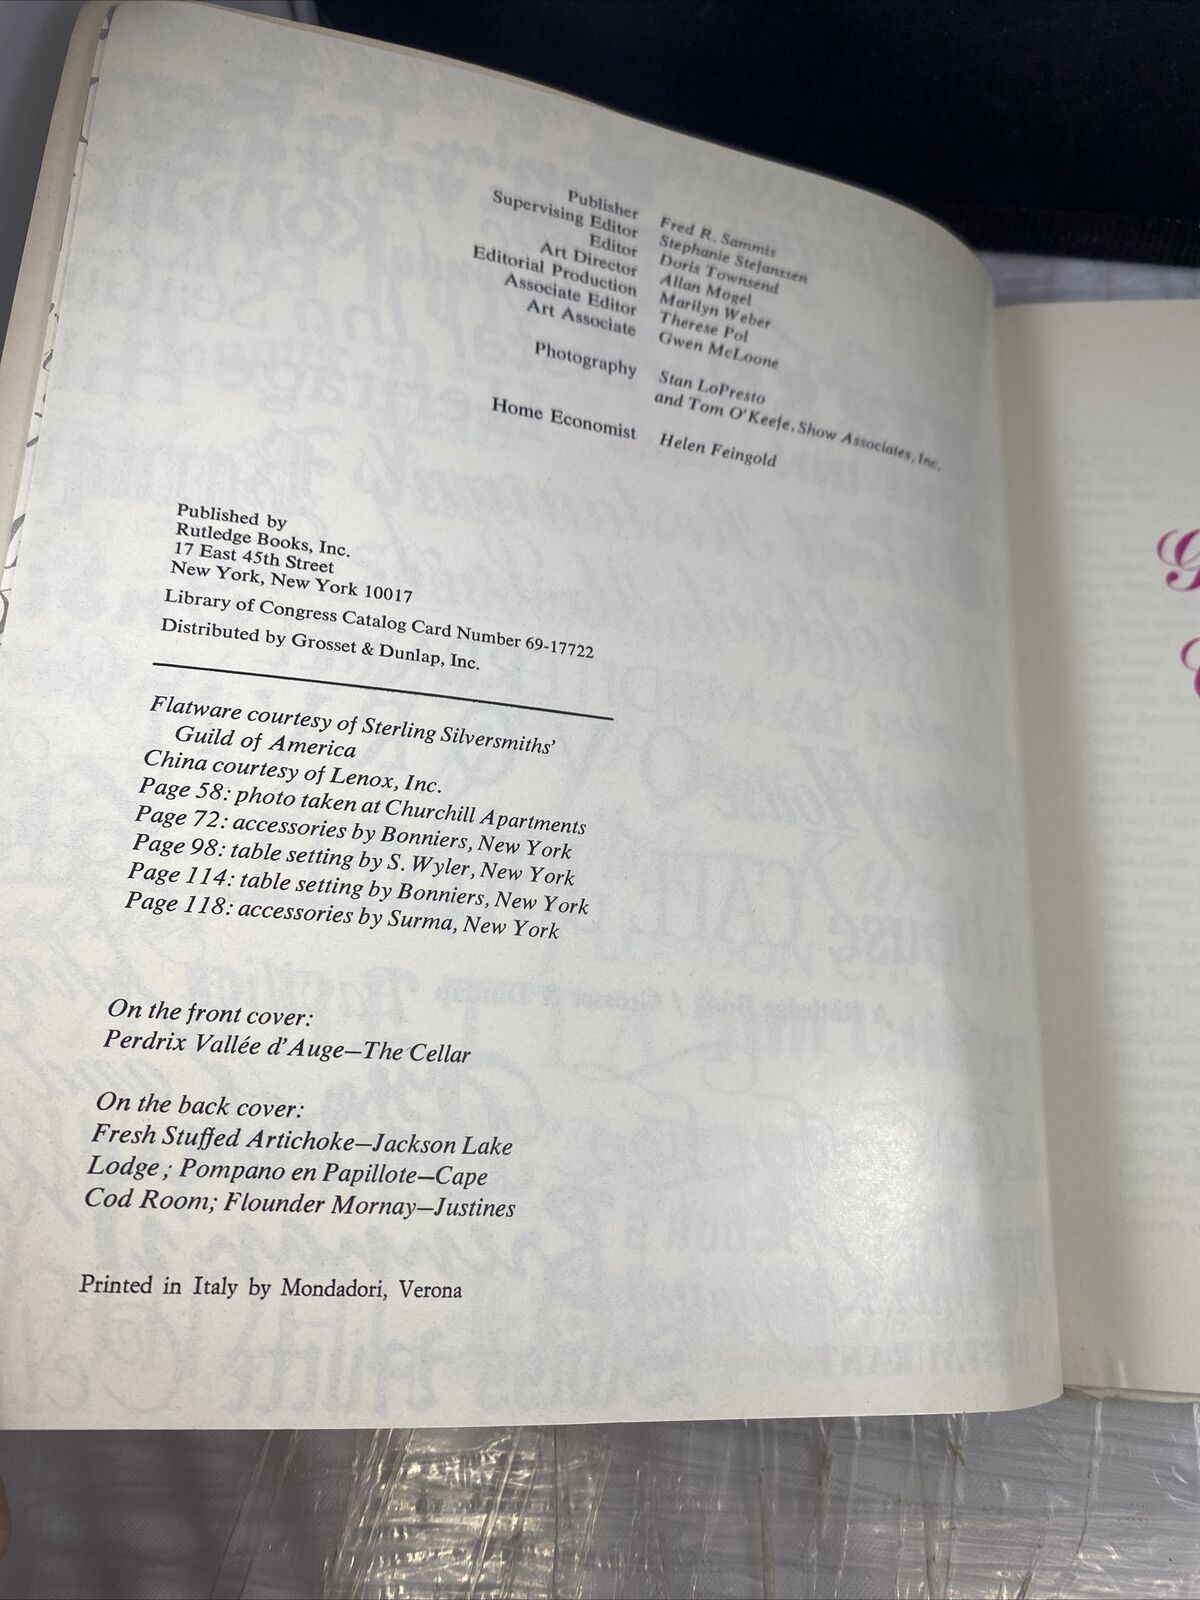 Publisher Fred R. Sammis
Supervising Editor Stephanie Stefanssen
Editor Doris Townsend
Art Director Allan Mogel
Editorial Production Marilyn Weber
Associate Editor Therese Pol
Art Associate Gwen McLoone
Photography Stan LoPresto
and Tom O'Keefe, Show Associates, Inc.
Home Economist Helen Feingold
Published by
Rutledge Books, Inc.
17 East 45th Street
New York, New York 10017
Library of Congress Catalog Card Number 69-17722
Distributed by Grosset & Dunlap, Inc.
Flatware courtesy of Sterling Silversmiths'
Guild of America
China courtesy of Lenox, Inc.
Page 58: photo taken at Churchill Apartments
Page 72: accessories by Bonniers, New York
Page 98: table setting by S. Wyler, New York
Page 114: table setting by Bonniers, New York
Page 118: accessories by Surma, New York
On the front cover:
Perdrix Vallée d'Auge—The Cellar
On the back cover:
Fresh Stuffed Artichoke—Jackson Lake
Lodge; Pompano en Papillote—Cape
Cod Room; Flounder Mornay—Justines
Printed in Italy by Mondadori, Verona